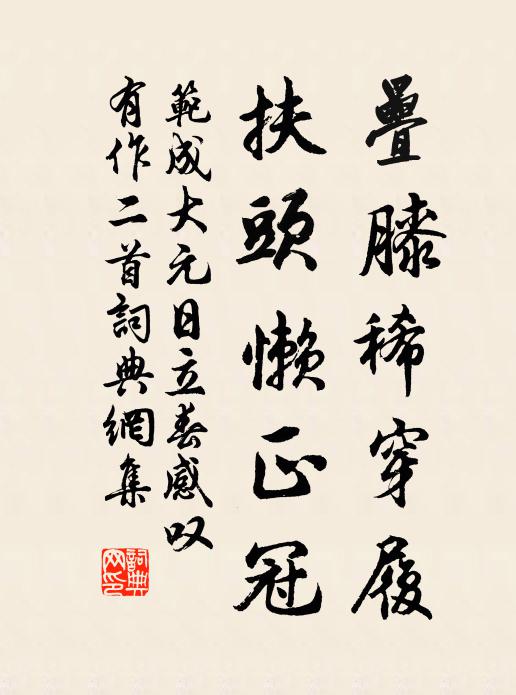 疊膝稀穿履
扶頭懶正冠
範成大元日立春感叹
有作二首詞典網集
詞典
网印